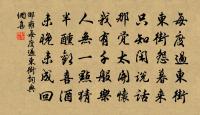 每度過東街
東街怨暮來
只知閑說話
那覺太開懷
我有千般樂
人無一點猜
半醺歡喜酒
未晚未成回
邵雍每度過東街詞典
網